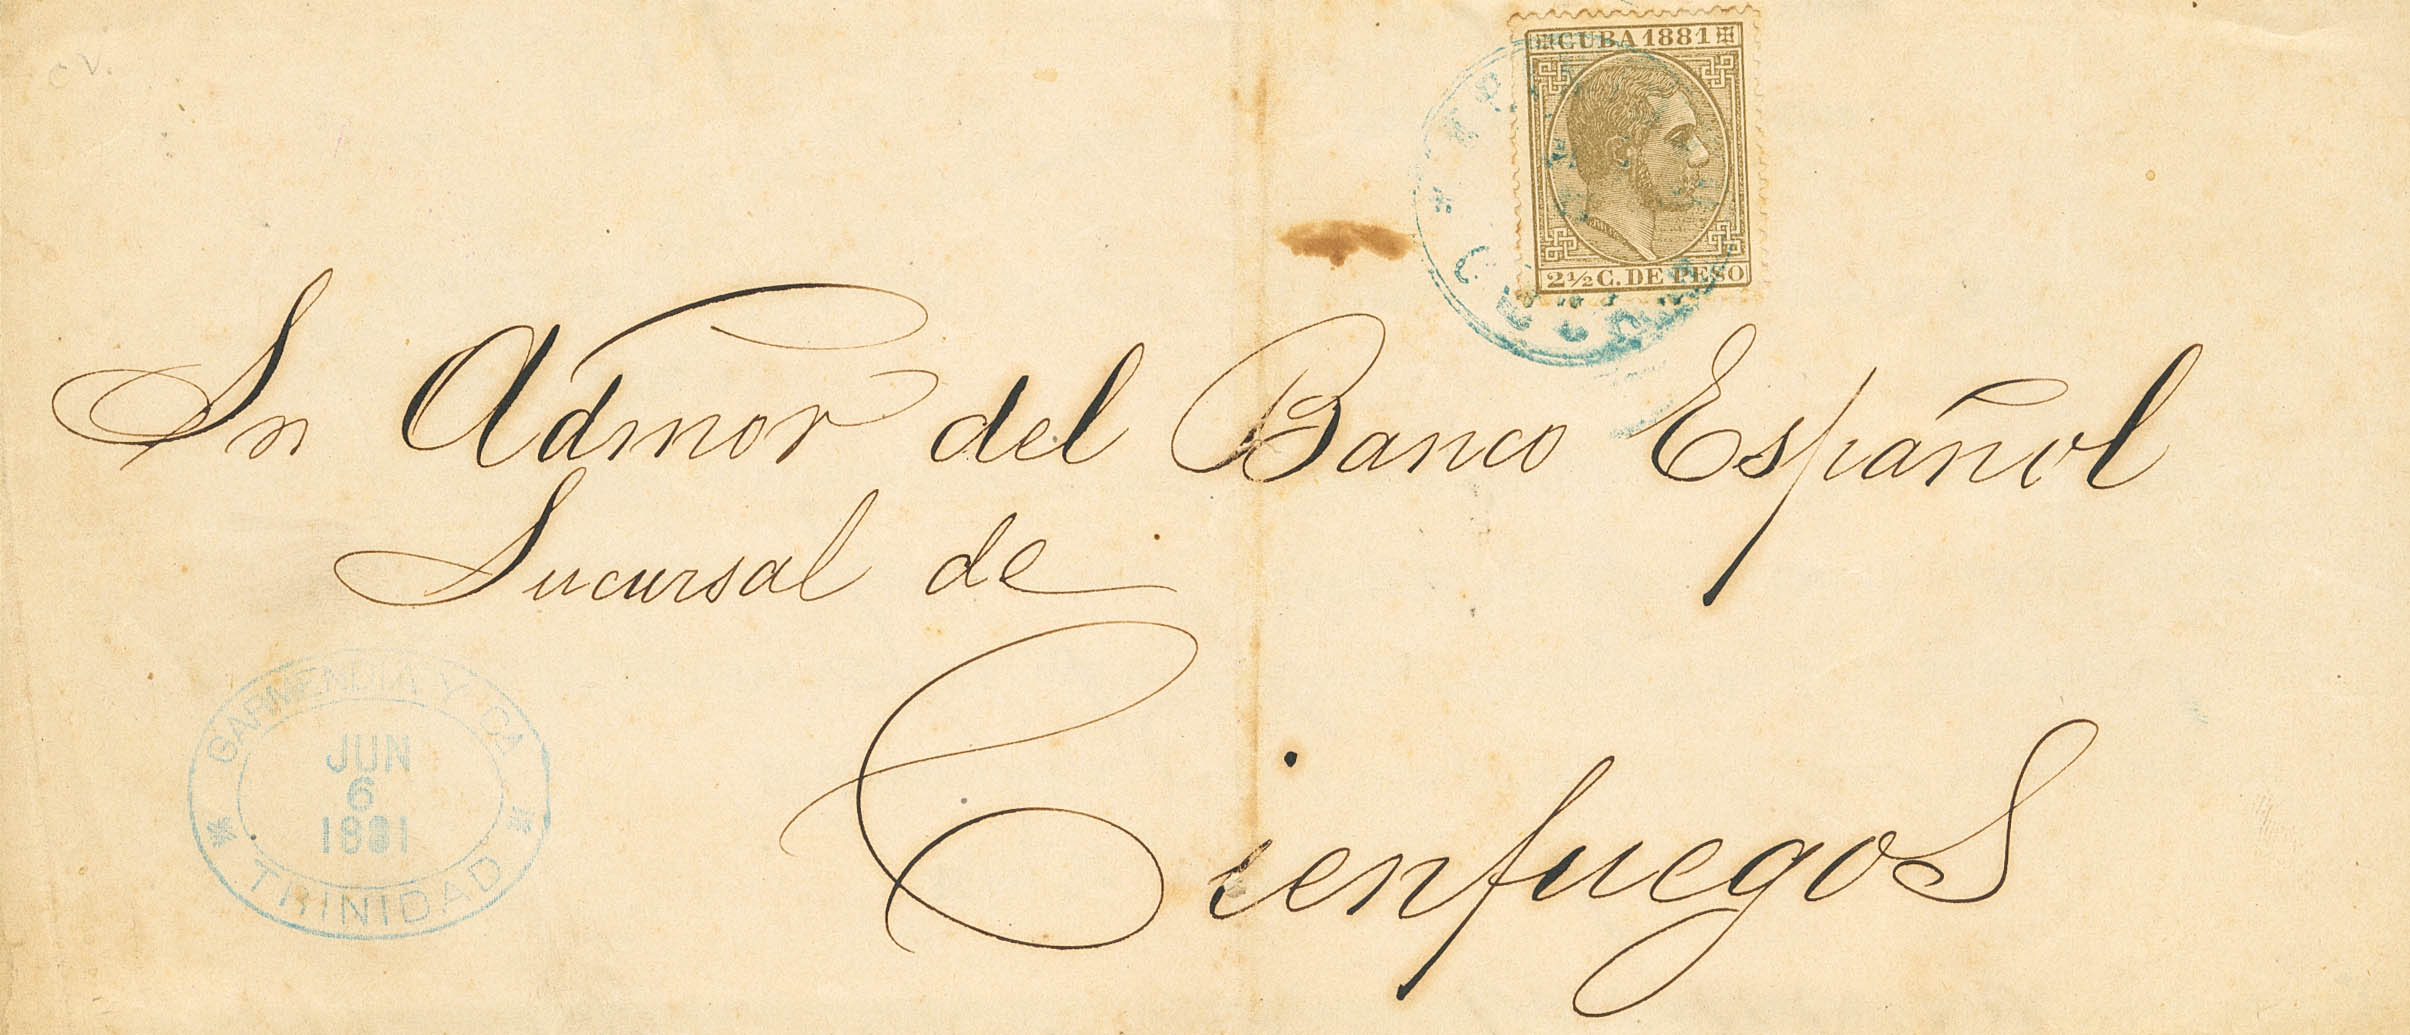 C V.
CUBA 1881
2½ C. DE PESO
Sr Admor del Banco Español
Sucursal de
Cienfuegos
GARMENDIA Y CA
JUN
6
1881
TRINIDAD